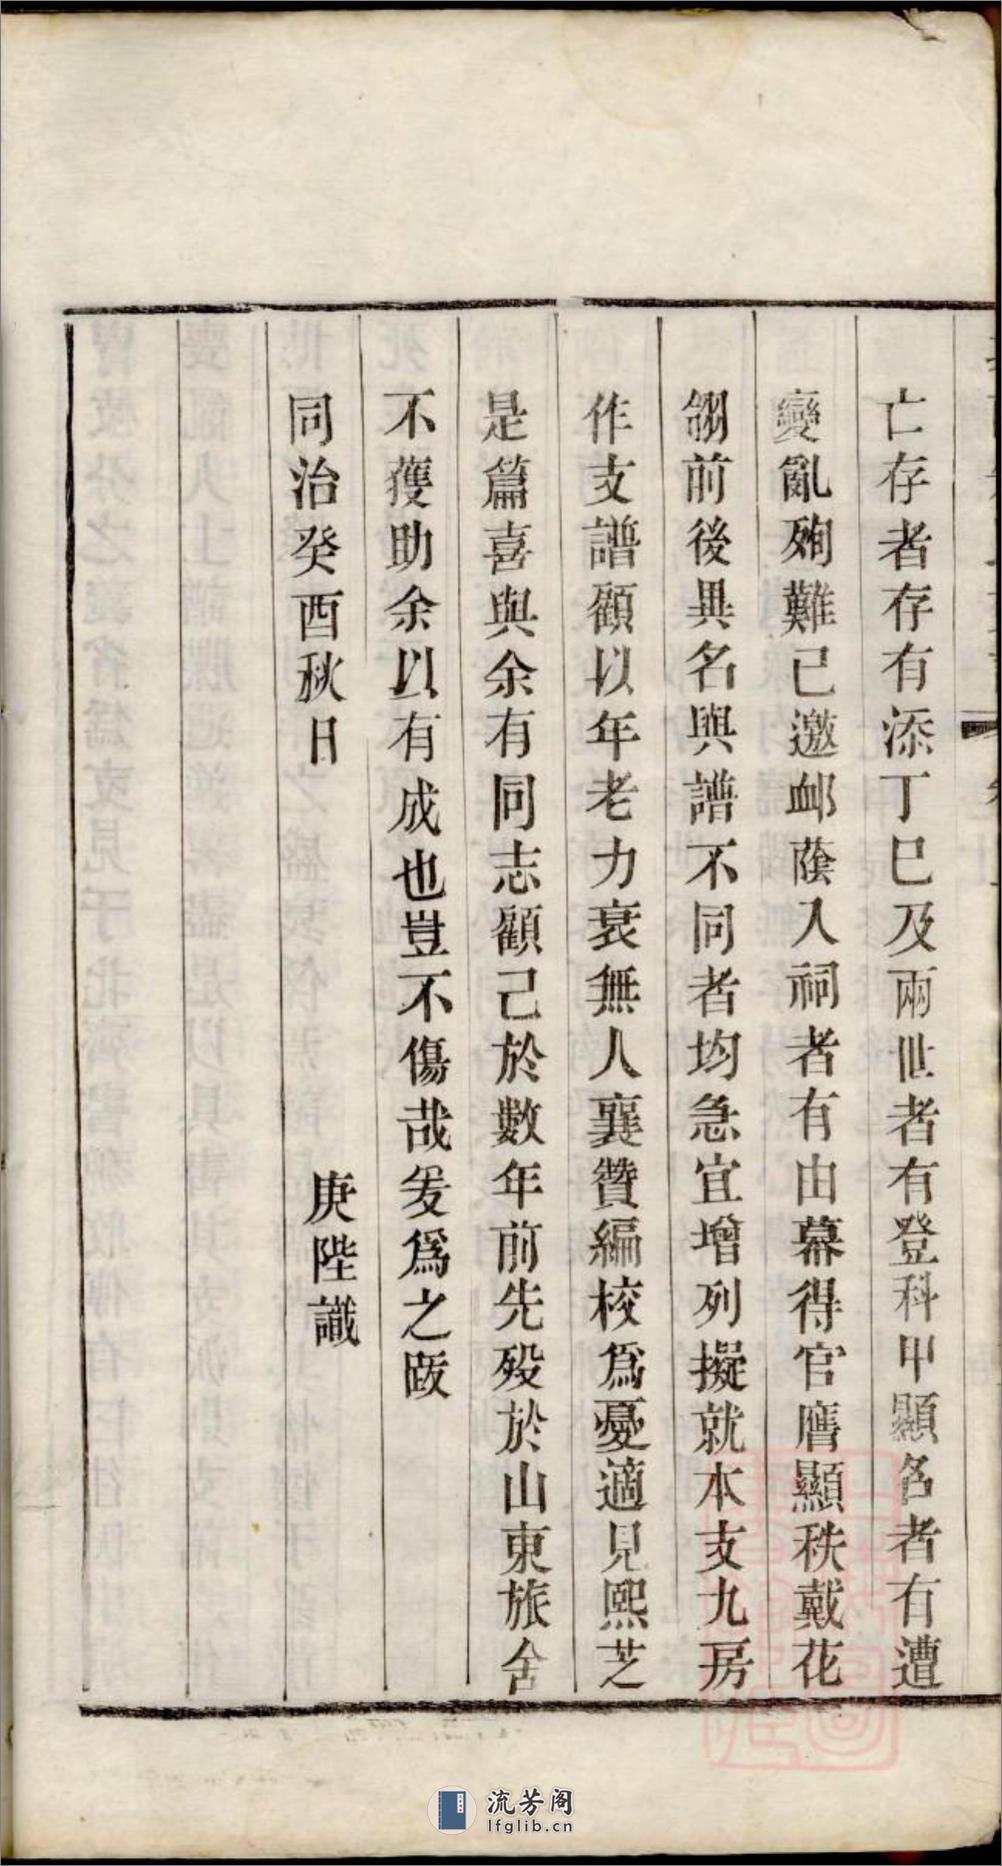 亡存者存有添丁巳及兩世者有登科甲顯名者有遭
變亂殉難已邀卹蔭入祠者有由幕得官膺顯秩戴花
翎前後異名與譜不同者均急宜增列擬就本支九房
作支譜顧以年老力衰無人襄贊編校爲憂適見熙芝
是篇喜與余有同志顧己於數年前先歿於山東旅舍
不獲助余以有成也豈不傷哉爰爲之跋
同治癸酉秋日
庚陛識
流芳阁
lfglib.cn